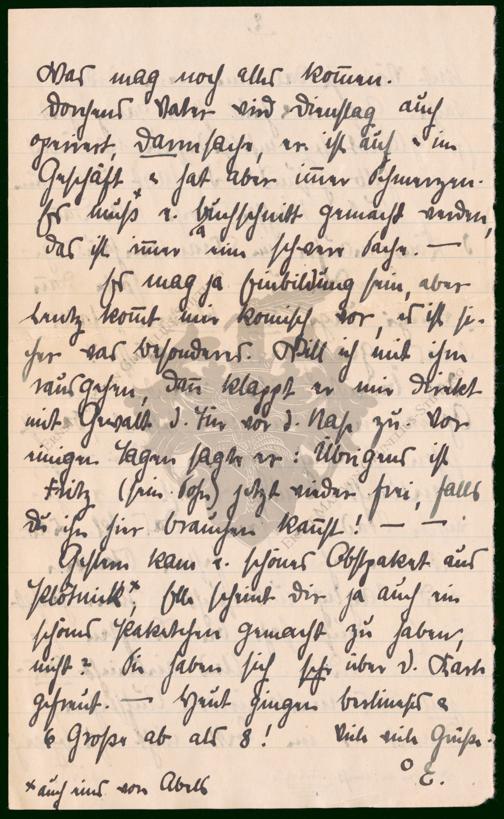 Was mag noch alles kom̄en.
Dorchens Vater wird Dienstag auch
operiert, Darmsache, er ist auch im
Geschäft & hat aber im̄er Schmerzen.
Es muß e. Bauchschnitt gemacht werden,
das ist im̄er eine schwere Sache. —
Es mag ja Einbildung sein, aber
Lentz kom̄t mir komisch vor, es ist si-
cher was besonderes. Will ich mit ihm
rausgehen, dan̄ klappt er mir direkt
mit Gewalt d. Tür vor d. Nase zu. Vor
einigen Tagen sagte er: Übrigens ist
Fritz (sein Sohn) jetzt wieder frei, falls
Du ihn hier brauchen kan̄st! — —
Gestern kam e. schönes Obstpaket aus
Klötnick*, Elle scheint Dir ja auch ein
schönes Paketchen gemacht zu haben,
nicht? Sie haben sich sehr über d. Karte
gefreut. — Heut gingen &
6 Große ab als 8! Viele viele Grüße.
E.
* auch eins von Abels